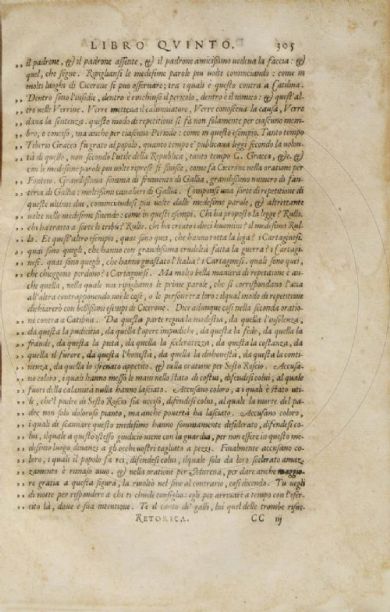 LIBRO QVINTO. 305
,, il padrone, & il padrone assente, & il padrone amicissimo vedeua la faccia: &
quel, che segue. Ripiglianſi le medesime parole piu volte cominciando: come in
molti luoghi di Cicerone ſi puo oſſeruare; tra i quali è queſto contra a Catilina.
,, Dentro ſono l'inſidie, dentro è rinchiuſo il pericolo, dentro è il nimico: & queſt'al
,, tro nelle Verrine. Verre metteua il calunniatore, Verre conoſceua la cauſa, Verre
,, daua la ſentenza. queſto modo di repetitione ſi fà non ſolamente per ciaſcun mem-
bro, e conciſo, ma anche per ciaſcun Periodo: come in queſto eſempio. Tanto tempo
,, Tiberio Giracco fu grato al popolo, quanto tempo e' publicaua leggi ſecondo la volon
,, tà di queſto, non ſecondo l'utile della Republica, tanto tempo C. Giracco, &c. &
con le medeſime parole piu volte repreſe ſi finiſce, come fa Cicerone nella oratione per
,, Fonteio. Grandiſſima ſomma di frumento di Gallia, grandiſſimo numero di fan-
,, teria di Gallia: moltiſſimi caualieri di Gallia. Componſi una ſorte di repetitione di
queſte ultime due, cominciandoſi piu volte dalle medeſime parole, & altrettante
,, volte nelle medeſime finendo: come in queſti eſempi. Chi ha propoſto la legge? Rullo.
,, chi ha tratto a ſorte le tribu? Rullo. chi ha creato i dieci huomini? il medeſimo Rul-
,, lo. Et queſt'altro eſempi, quai ſono quei, che hanno rotta la lega? i Cartagineſi.
,, quai ſono quegli, che hanno con grandiſſima crudeltà fatta la guerra? i Cartagi-
,, neſi. quai ſono quegli, che hanno guaſtato l'Italia? i Cartagineſi. quali ſono quei,
,, che chieggono perdono? i Cartagineſi. Ma molto bella maniera di repetitione è an-
che quella, nella quale noi ripigliamo le prime parole, che ſi corriſpondano l'una
all'altra contraponendo molte coſe, o le perſone tra loro: il qual modo di repetitione
dichiarerò con belliſſimi eſempi di Cicerone. Dice adunque coſi nella ſeconda oratio-
,, ne contro a Catilina. Da queſta parte repugna la modeſtia, da quella l'inſolenza,
,, da queſta la pudicitia, da quella l'opere impudiche, da queſta la fede, da quella la
,, fraude, da queſta la pieta, da quella la ſceleratezza, da queſta la coſtanza, da
,, quella il furore, da queſta l'honeſtà, da quella la dishoneſtà, da queſta la conti-
,, nenza, da quella lo sfrenato appetito. & nella oratione per Seſto Roſcio. Accuſa-
,, no coloro, i quali hanno meſſo le mani nello ſtato di coſtui, difendeſi colui, al quale
,, fuori della calamità nulla hanno laſciato. Accuſano coloro, a i quali è ſtato uti-
,, le, che'l padre di Seſto Roſcio ſia ucciſo, difendeſi colui, al quale la morte del pa-
,, dre non ſolo doloroſo pianto, ma anche pouertà ha laſciato. Accuſano coloro,
,, i quali di ſcannare queſto medeſimo hanno ſommamente deſiderato, difendeſi co-
,, lui, il quale a queſto iſteſſo giudicio viene con la guardia, per non eſſere in queſto me-
,, deſimo luogo dinanzi a gli occhi noſtri tagliato a pezzi. Finalmente accuſano co-
,, loro, i quali il popolo fa rei, difendeſi colui, il quale ſolo da loro ſcelerato amaz-
,, zamento è rimaſo viuo. & nella oratione per Murena, per dare anche maggio-
re gratia a queſta figura, la riuoltò nel ſuo al contrario, coſi dicendo. Tu vegli
,, di notte per riſpondere a chi ti chiede conſiglio: egli per arriuare a tempo con l'eſer-
,, cito là, doue è ſua intentione. Te il canto de' galli, lui quel delle trombe riſue-
RETORICA. CC iij